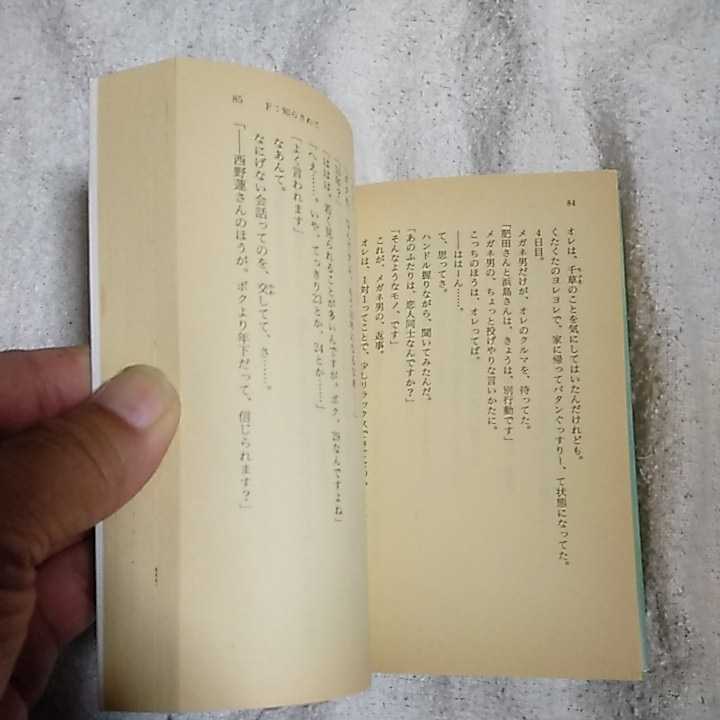 84
オレは、千草のことを気にしてはいたんだけれども。
くたくたのヨレヨレで、家に帰ってバタンぐっすりー、て状態になってた。
4日目。
メガネ男だけが、オレのクルマを、待ってた。
「肥田さんと浜島さんは、きょうは、別行動です」
メガネ男の、ちょっと投げやりな言いかたに。
こっちのほうは、オレってば。
――ははーん……。
て、思ってさ。
ハンドル握りながら、聞いてみたんだ。
「あのふたりは、恋人同士なんですか？」
「そんなようなモノ、です」
これが、メガネ男の、返事。
オレは、1対1ってことで、少しリラックスで
85
「ははは、若く見られることが多いんですが。ボク、28なんですよね」
「へえ……。いや、てっきり23とか、24とか……」
「よく言われます」
なあんて。
なにげない会話ってのを、交してて、さ……。
「――西野蓮さんのほうが。ボクより年下だって、信じられます？」